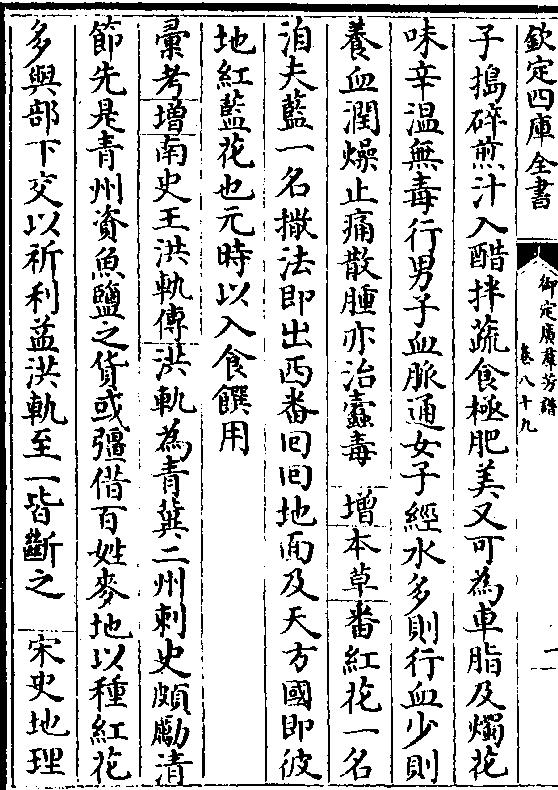 欽定四庫全書
御定廣羣芳譜
卷八十九
一
子搗碎煎汁入醋拌蔬食極肥美又可為車脂及燭花
味辛溫無毒行男子血脈通女子經水多則行血少則
養血潤燥止痛散腫亦治蠱毒 增本草番紅花一名
洎夫藍一名撒法即出西番回回地面及天方國即彼
地紅藍花也元時以入食饌用
彚考增南史王洪軌傳洪軌為青冀二州刺史頗勵清
節先是青州資魚鹽之貨或彊借百姓麥地以種紅花
多與部下交以祈利益洪軌至一皆斷之 宋史地理